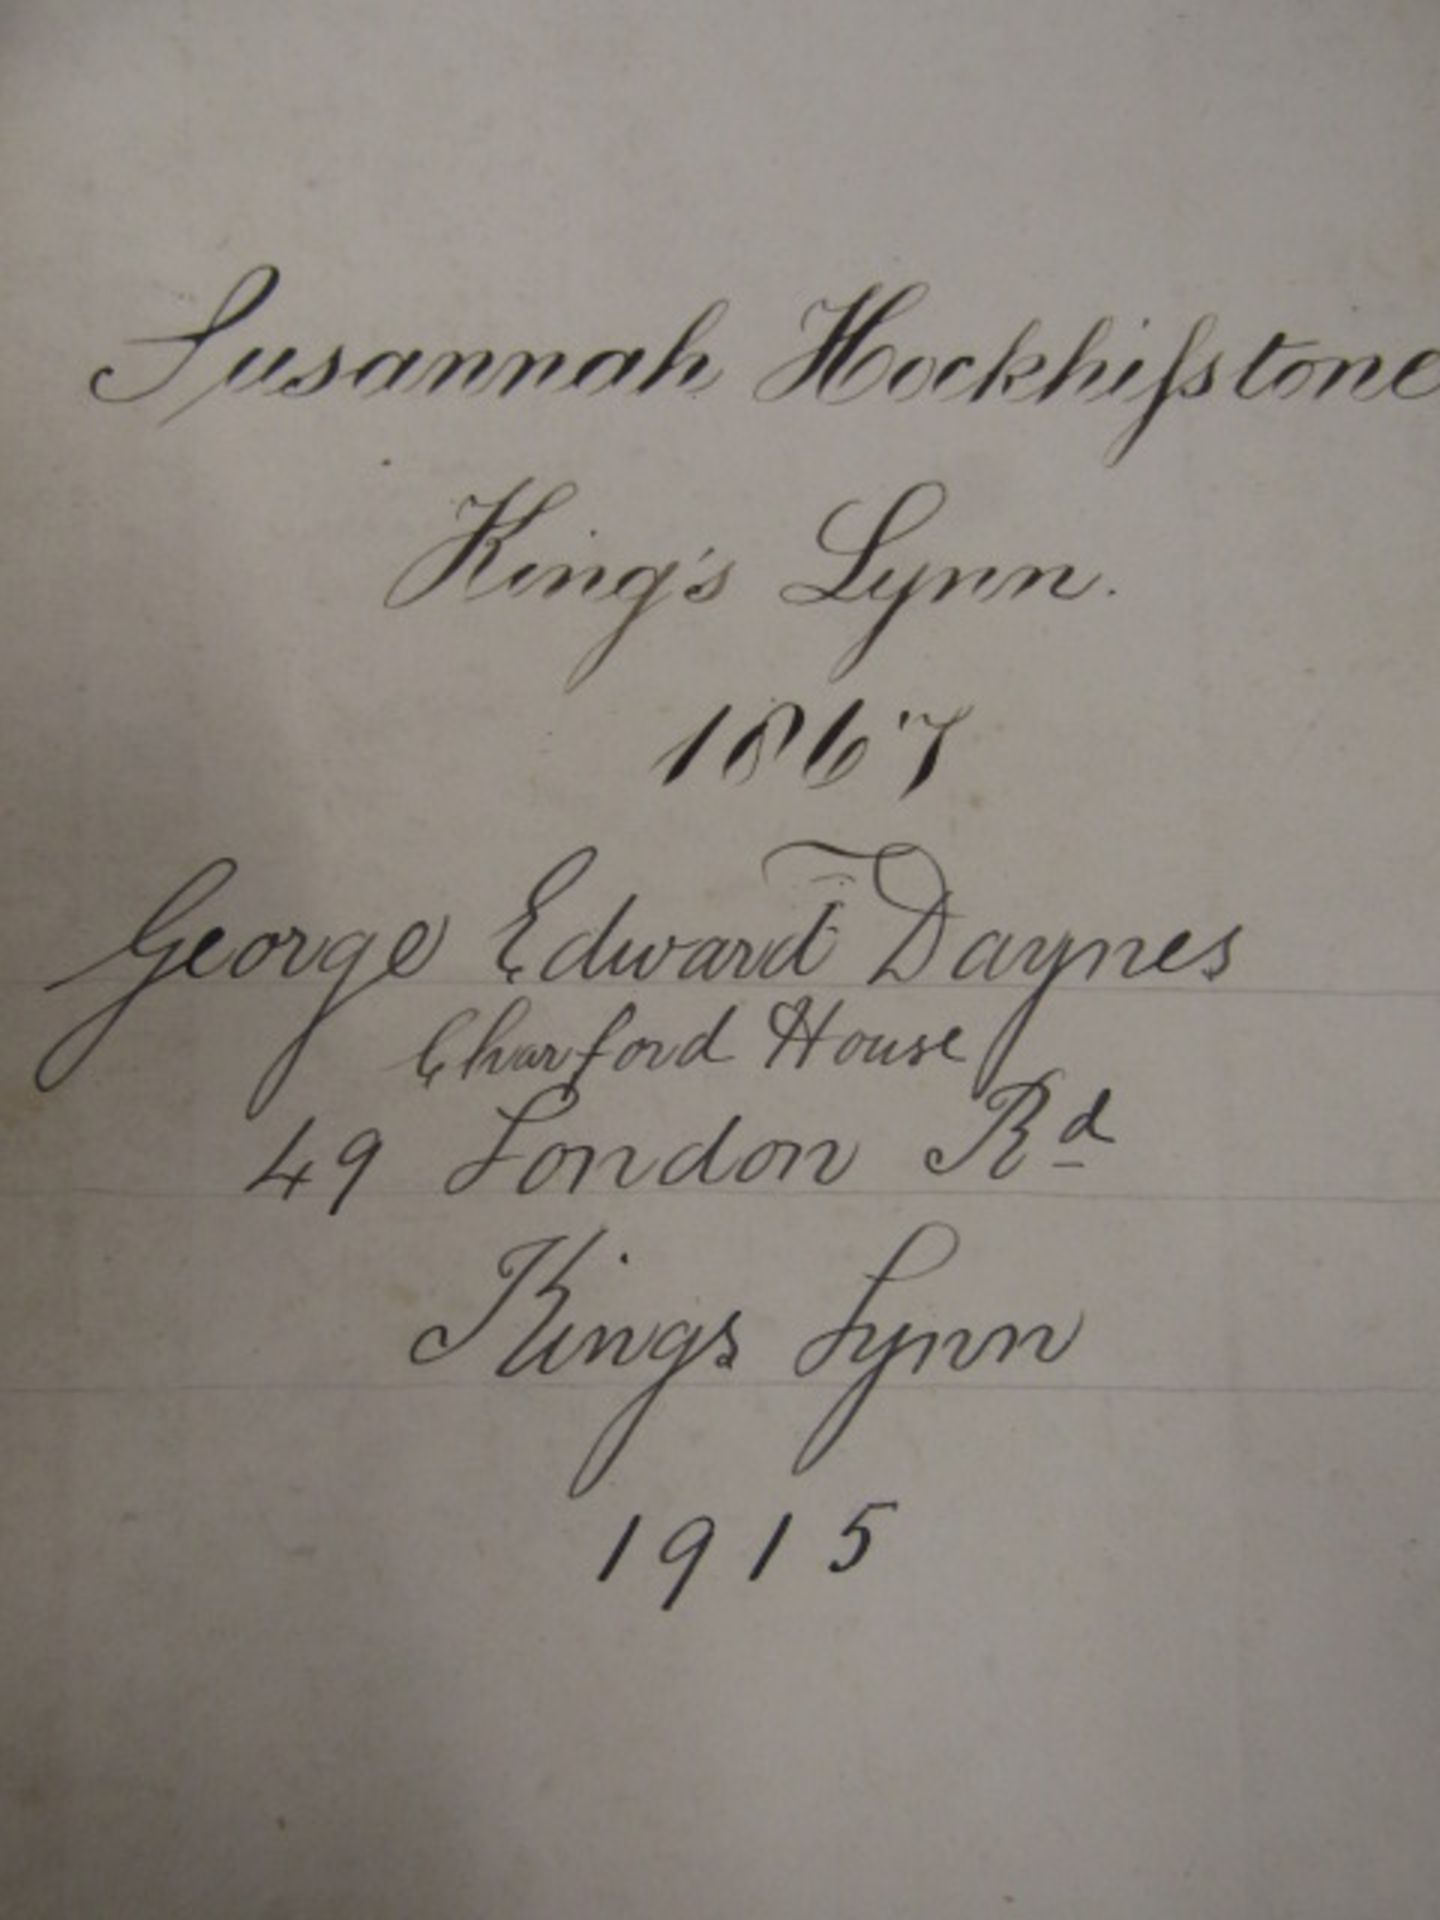 Susannah Hockhiſstone
King's Lynn.
1867
George Edward Daynes
Charford House
49 London Rd
Kings Lynn
1915